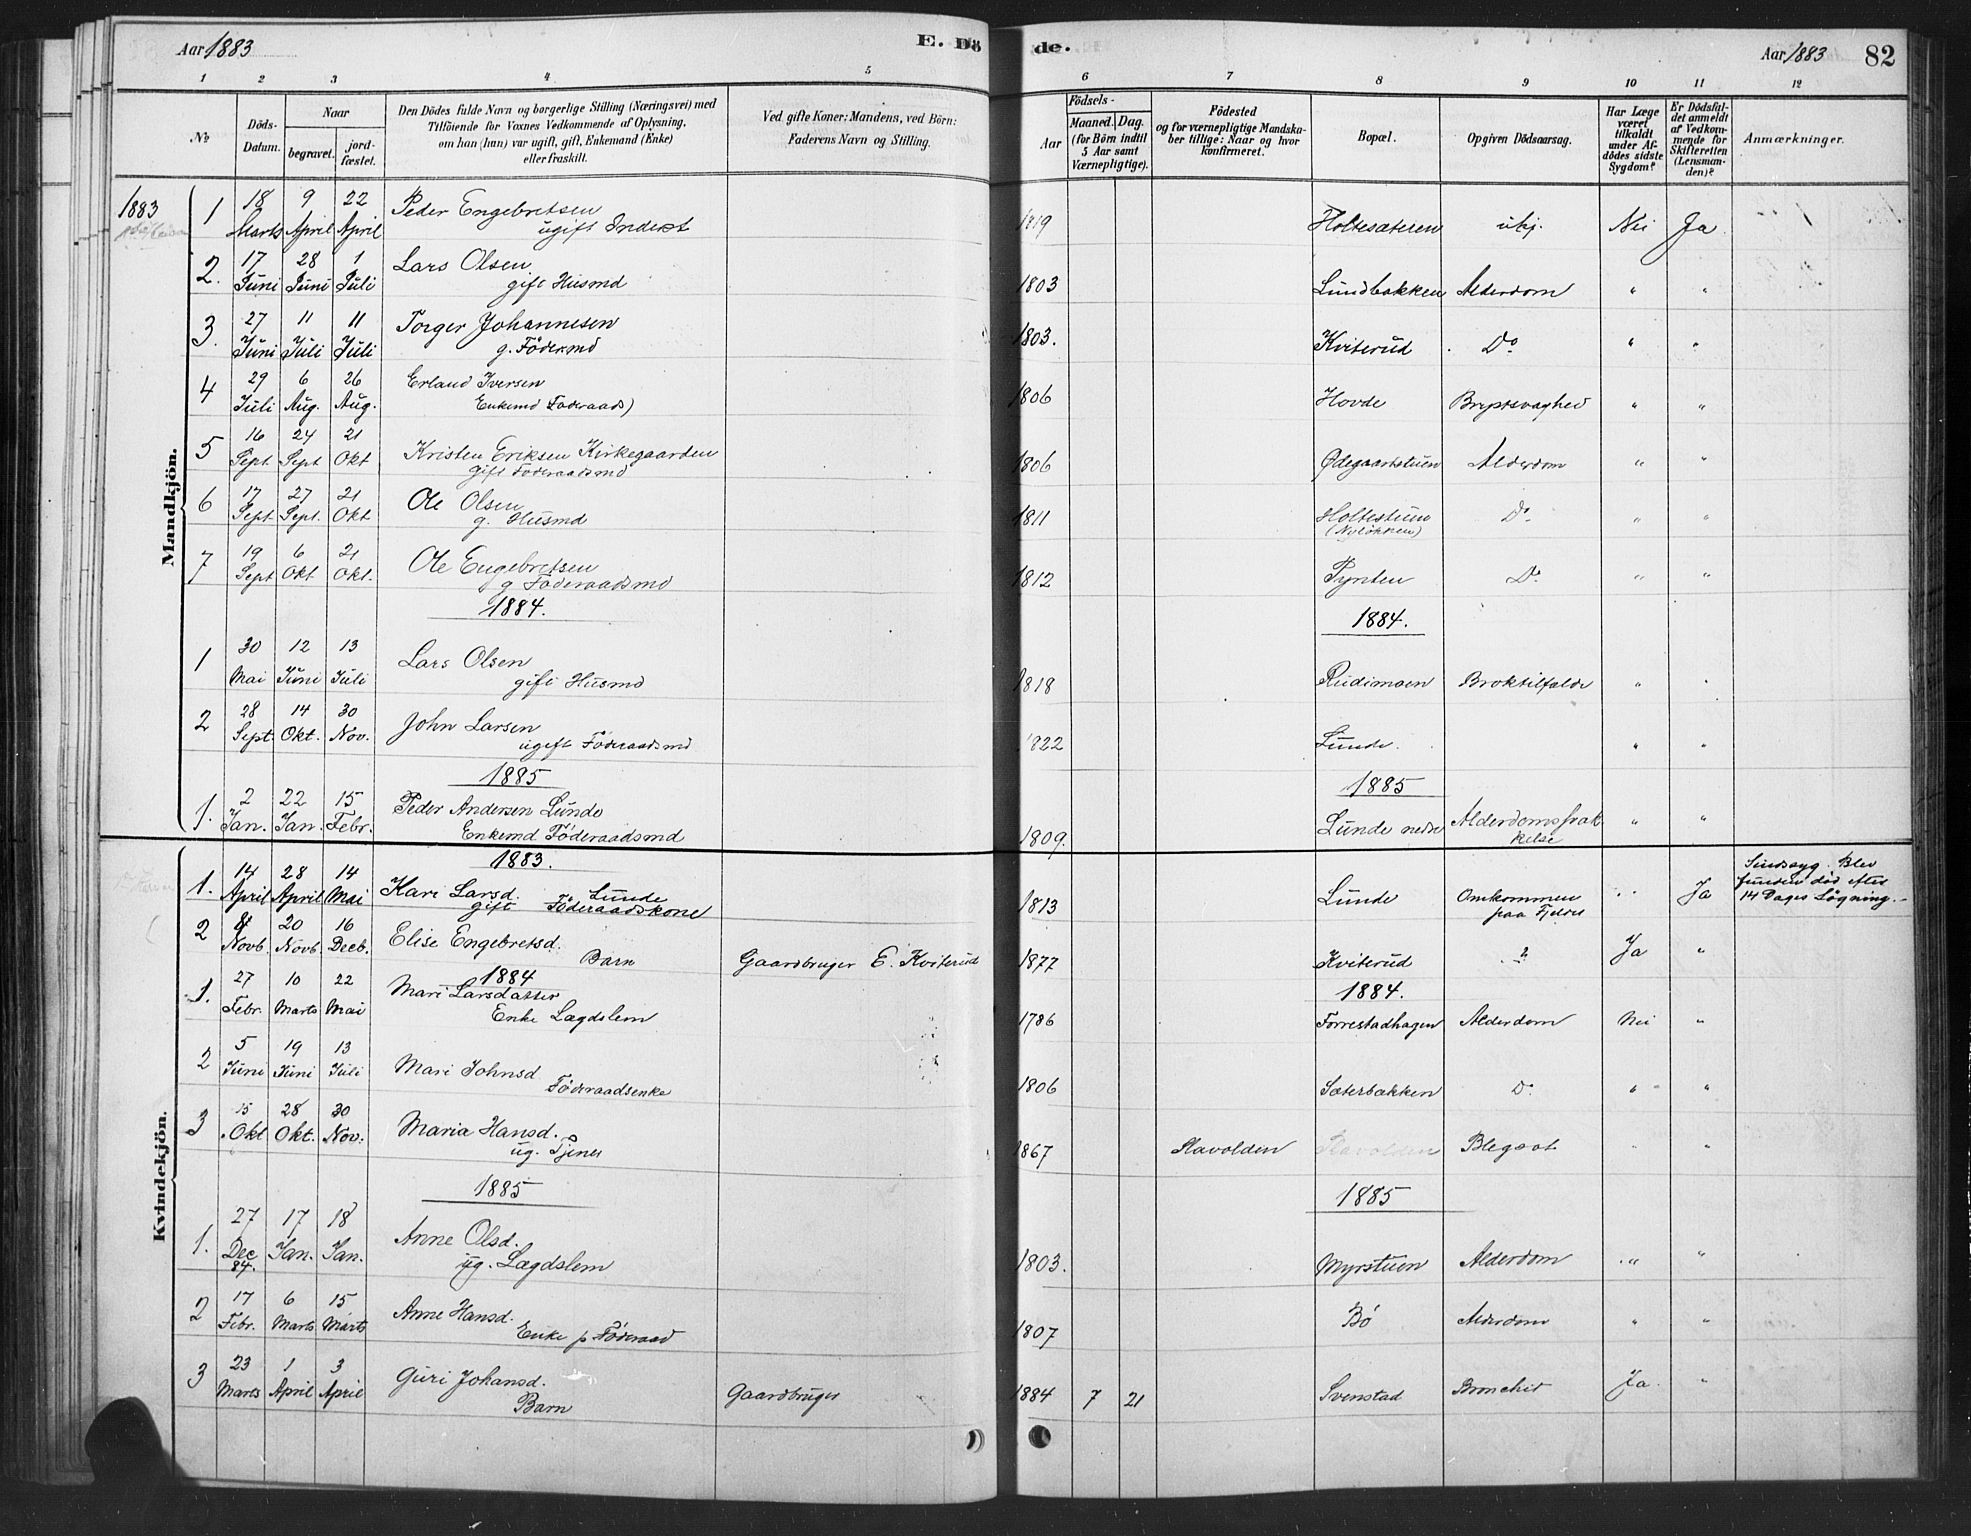 Aar 1883 E. Dö
de. Aar 1883 82
1 2 3 4 5 6 7 8 9 10 11 12
No
Döds-Datum.
Naar
begravet.
jord-fæstet.
Den Dödes fulde Navn og borgerlige Stilling (Næringsvei) med
Tilföiende for Voxnes Vedkommende af Oplysning,
om han (hun) var ugift, gift, Enkemand (Enke)
eller fraskilt.
Ved gifte Koner: Mandens, ved Börn:
Faderens Navn og Stilling.
Födsels-
Aar
Maaned. Dag.
(for Börn indtil
5 Aar samt
Værnepligtige).
Födested
og for værnepligtige Mandska-
ber tillige: Naar og hvor
konfirmeret.
Bopæl.
Opgiven Dödsaarsag.
Har Læge
været
tilkaldt
under Af-
dödes sidste
Sygdom?
Er Dödsfal-
det anmeldt
af Vedkom-
mende for
Skifteretten
(Lensman-
den)?
Anmærkninger.
Mandkjön.
1883
1 18 Marts 9 April 22 April Peder Engebretsen 1819 Holtesæteren Nei Ja
ugift Inderst
2. 17 Juni 28 Juni 1 Juli Lars Olsen 1803 Lundbakken Alderdom " "
gift Husmd
3. 27 Juni 11 Juli 11 Juli Torger Johannesen 1803. Kviterud Do " "
g. Födermd
4 29 Juli 6 Aug. 26 Aug. Erland Iversen 1806 Hovde Brystsvaghed " "
Enkemd Föderaads)
5 16 Sept. 24 Sept 21 Okt Kristen Eriksen Kirkegaarden 1806 Ødegaardstuen Alderdom " "
gift Föderaadsmd
6 17 Sept 27 Sept. 21 Okt Ole Olsen 1811 Holtestuen Do " "
g. Husmd (Nyløkken)
7 19 Sept 6 Okt 21 Okt. Ole Engebretsen 1812 Pynten Do " "
g Föderaadsmd
1884. 1884.
1 30 Mai 12 Juni 13 Juli Lars Olsen 1818 Rudimoen Broktilfælde " "
gift Husmd
2 28 Sept. 14 Okt. 30 Nov. John Larsen 1822 Lunde. " "
ugift Föderaadsmd
1885 1885
1. 2 Jan. 22 Jan. 15 Febr. Peder Andersen Lunde 1809. Lunde nedre Alderdomssvækkelse " "
Enkemd Föderaadsmd
Kvindekjön.
1883.
1. 14 April 28 April 14 Mai Kari Larsd. Lunde 1813 Lunde Omkommen paa Fjeldet " Ja Sindssyg. Blev funden död efter 14 Dages Søgning.
gift Föderaadskone
2 8 Novb. 20 Novb. 16 Decb. Elise Engebretsd. Gaardbruger E. Kviterud 1877 Kviterud ? Ja "
Barn
1884 1884.
1. 27 Febr. 10 Marts 22 Mai Mari Larsdatter 1786 Forrestadhagen Alderdom Nei "
Enke Lægdslem
2 5 Juni 19 Juni 13 Juli Mari Johnsd 1806 Sæterbakken Do " "
Föderaadsenke
3 15 Okt 28 Okt. 30 Nov. Maria Hansd. 1867 Stavolden Stavolden Blegsot " "
ug. Tjener
1885 1885
1. 27 Dec 84. 17 Jan. 18 Jan. Anne Olsd. 1803. Myrstuen Alderdom " "
ug. Lægdslem
2 17 Febr. 6 Marts 15 Marts Anne Hansd. 1807 Bö Alderdom " "
Enke p Föderaad
3 23 Marts 1 April 3 April Guri Johansd. Gaardbruger 1884 7 21 Svenstad Bronchit Ja "
Barn